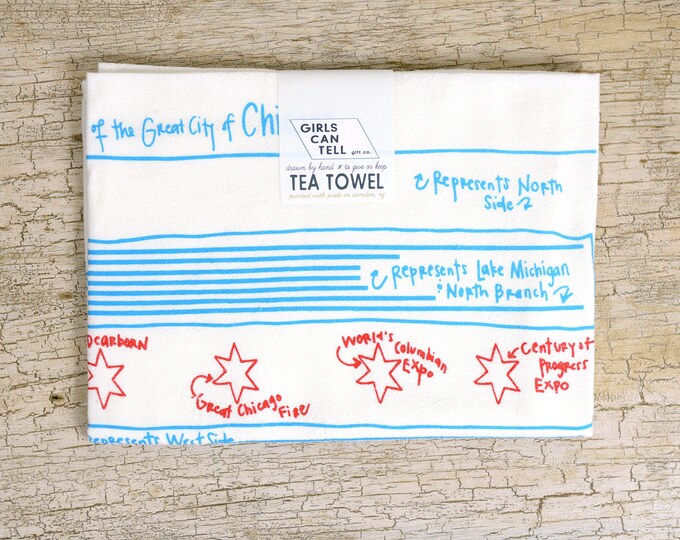 of the Great City of Chi
GIRLS
CAN
TELL
gift co.
drawn by hand & to give or keep
TEA TOWEL
printed with pride in camden, nj
Represents North
Side
Represents Lake Michigan
& North Branch
Dearborn
Great Chicago
Fire
World's
Columbian
Expo
Century of
Progress
Expo
represents West Side